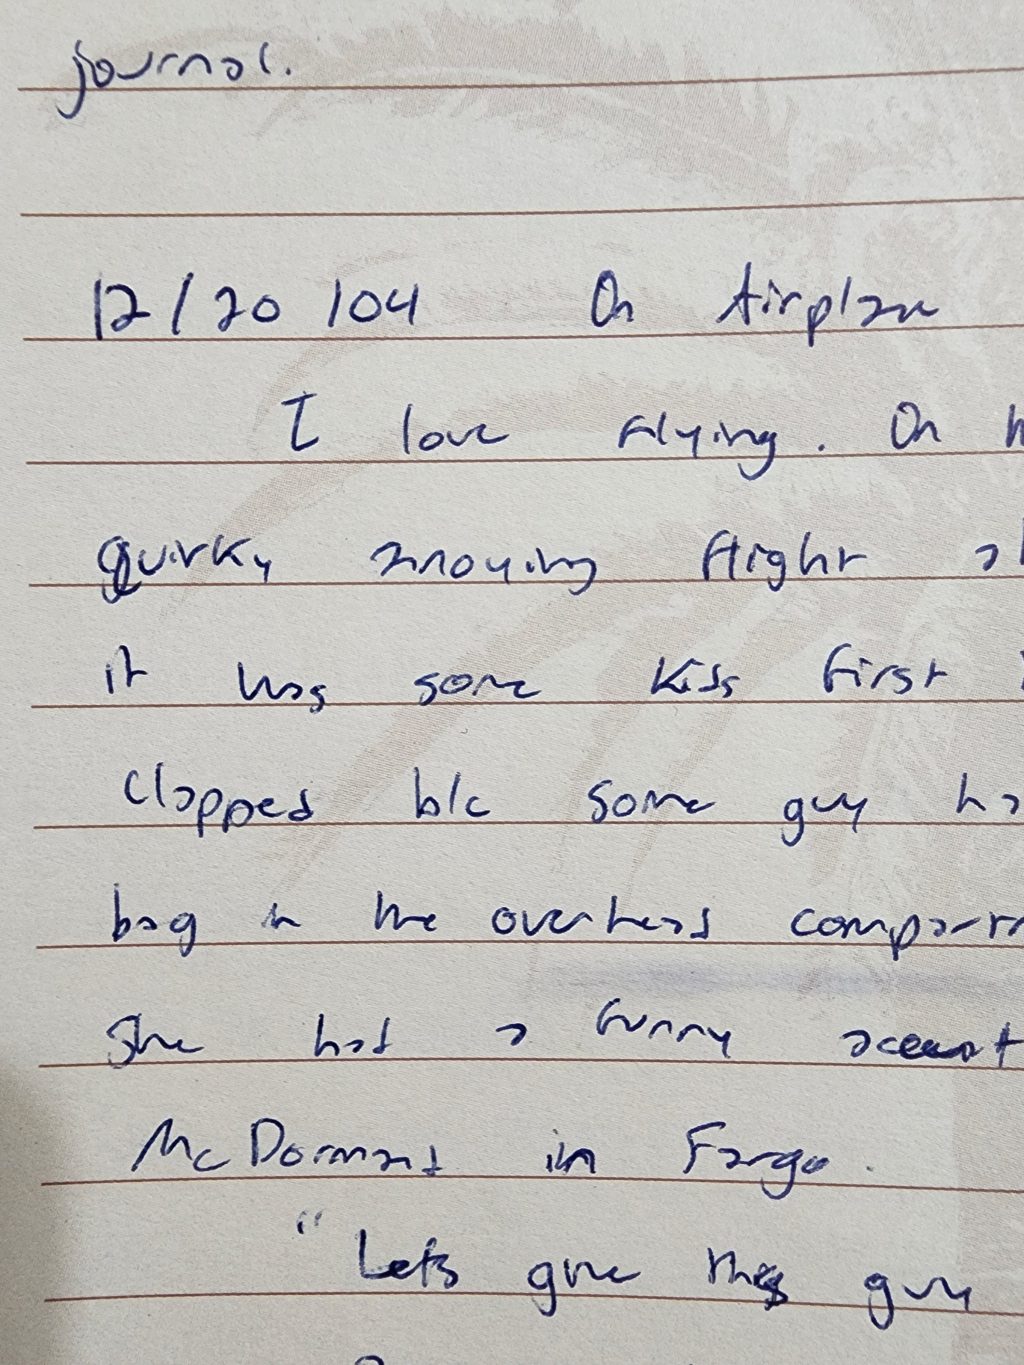 journal.
12/20/04 On Airplane
I love flying. On
quirky annoying flight
it was some kids first
clapped b/c some guy
bag in the overhead
She had a funny accent
McDormand in Fargo.
"Lets give this guy